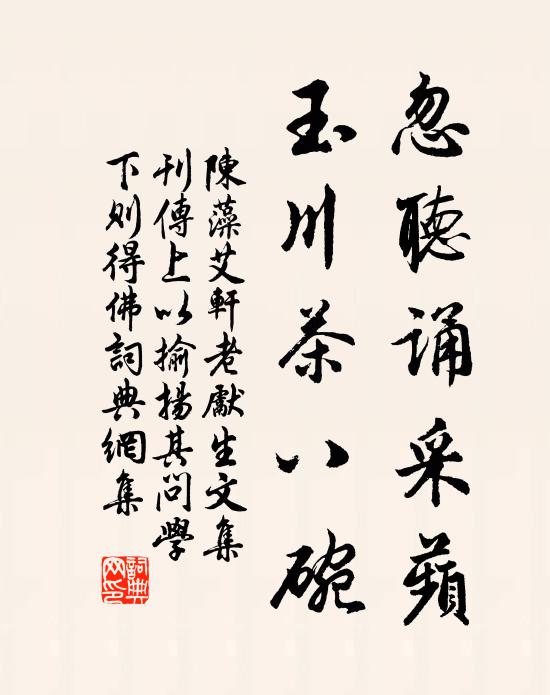 忽聽誦采蘋
玉川茶八碗
陳藻艾軒老獻生文集
刊傳上以揄揚其問學
下則得佛詞典網集
詞典
网印